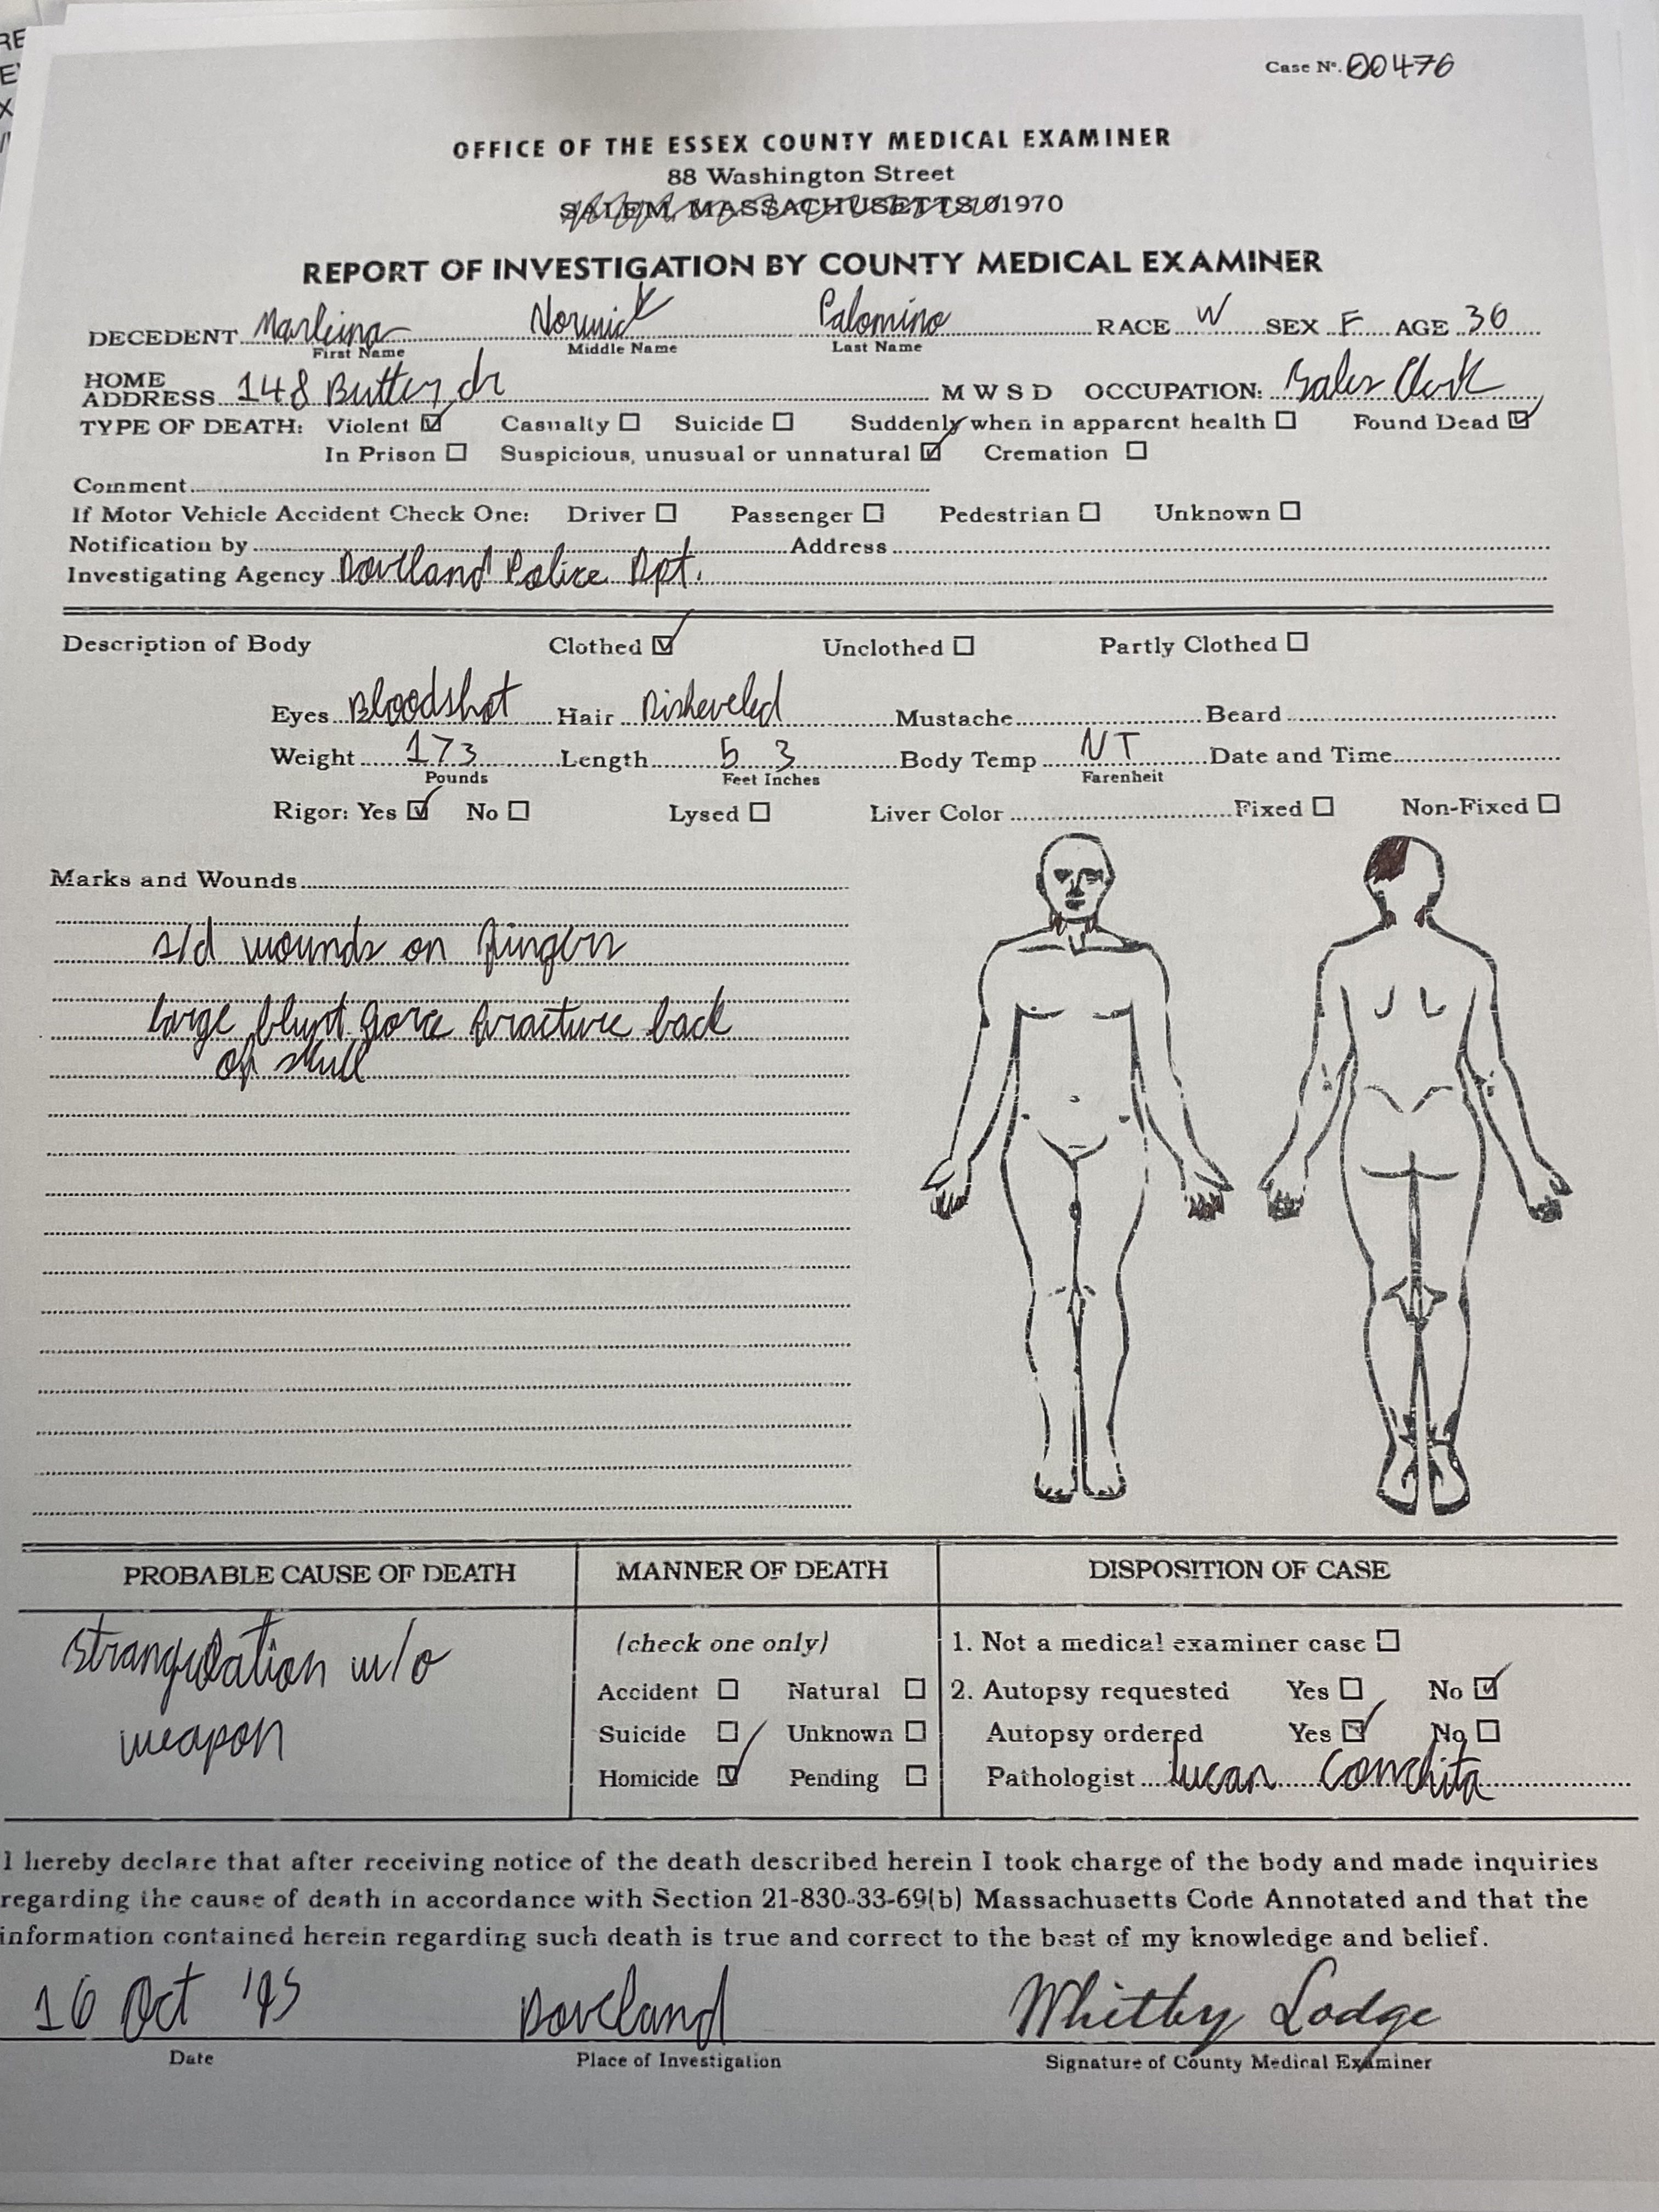 Case Nº. 00476
OFFICE OF THE ESSEX COUNTY MEDICAL EXAMINER
88 Washington Street
SALEM, MASSACHUSETTS 01970
REPORT OF INVESTIGATION BY COUNTY MEDICAL EXAMINER
DECEDENT Marleina Norwick Palomino RACE W SEX F AGE 36
First Name Middle Name Last Name
HOME ADDRESS 148 dr M W S D OCCUPATION: Sales Clerk
TYPE OF DEATH: Violent Casualty Suicide Suddenly when in apparent health Found Dead
In Prison Suspicious, unusual or unnatural Cremation
Comment
If Motor Vehicle Accident Check One: Driver Passenger Pedestrian Unknown
Notification by Address
Investigating Agency Doveland Police Dpt.
Description of Body Clothed Unclothed Partly Clothed
Eyes Bloodshot Hair Disheveled Mustache Beard
Weight 173 Length 5 3 Body Temp NT Date and Time
Pounds Feet Inches Farenheit
Rigor: Yes No Lysed Liver Color Fixed Non-Fixed
Marks and Wounds
s/d wounds on fingers
large blunt force fracture back
of skull
PROBABLE CAUSE OF DEATH MANNER OF DEATH DISPOSITION OF CASE
strangulation w/o
weapon
(check one only)
Accident Natural
Suicide Unknown
Homicide Pending
1. Not a medical examiner case
2. Autopsy requested Yes No
Autopsy ordered Yes No
Pathologist Lucan Conchita
I hereby declare that after receiving notice of the death described herein I took charge of the body and made inquiries
regarding the cause of death in accordance with Section 21-830-33-69(b) Massachusetts Code Annotated and that the
information contained herein regarding such death is true and correct to the best of my knowledge and belief.
16 Oct '95 Doveland Whitby Lodge
Date Place of Investigation Signature of County Medical Examiner